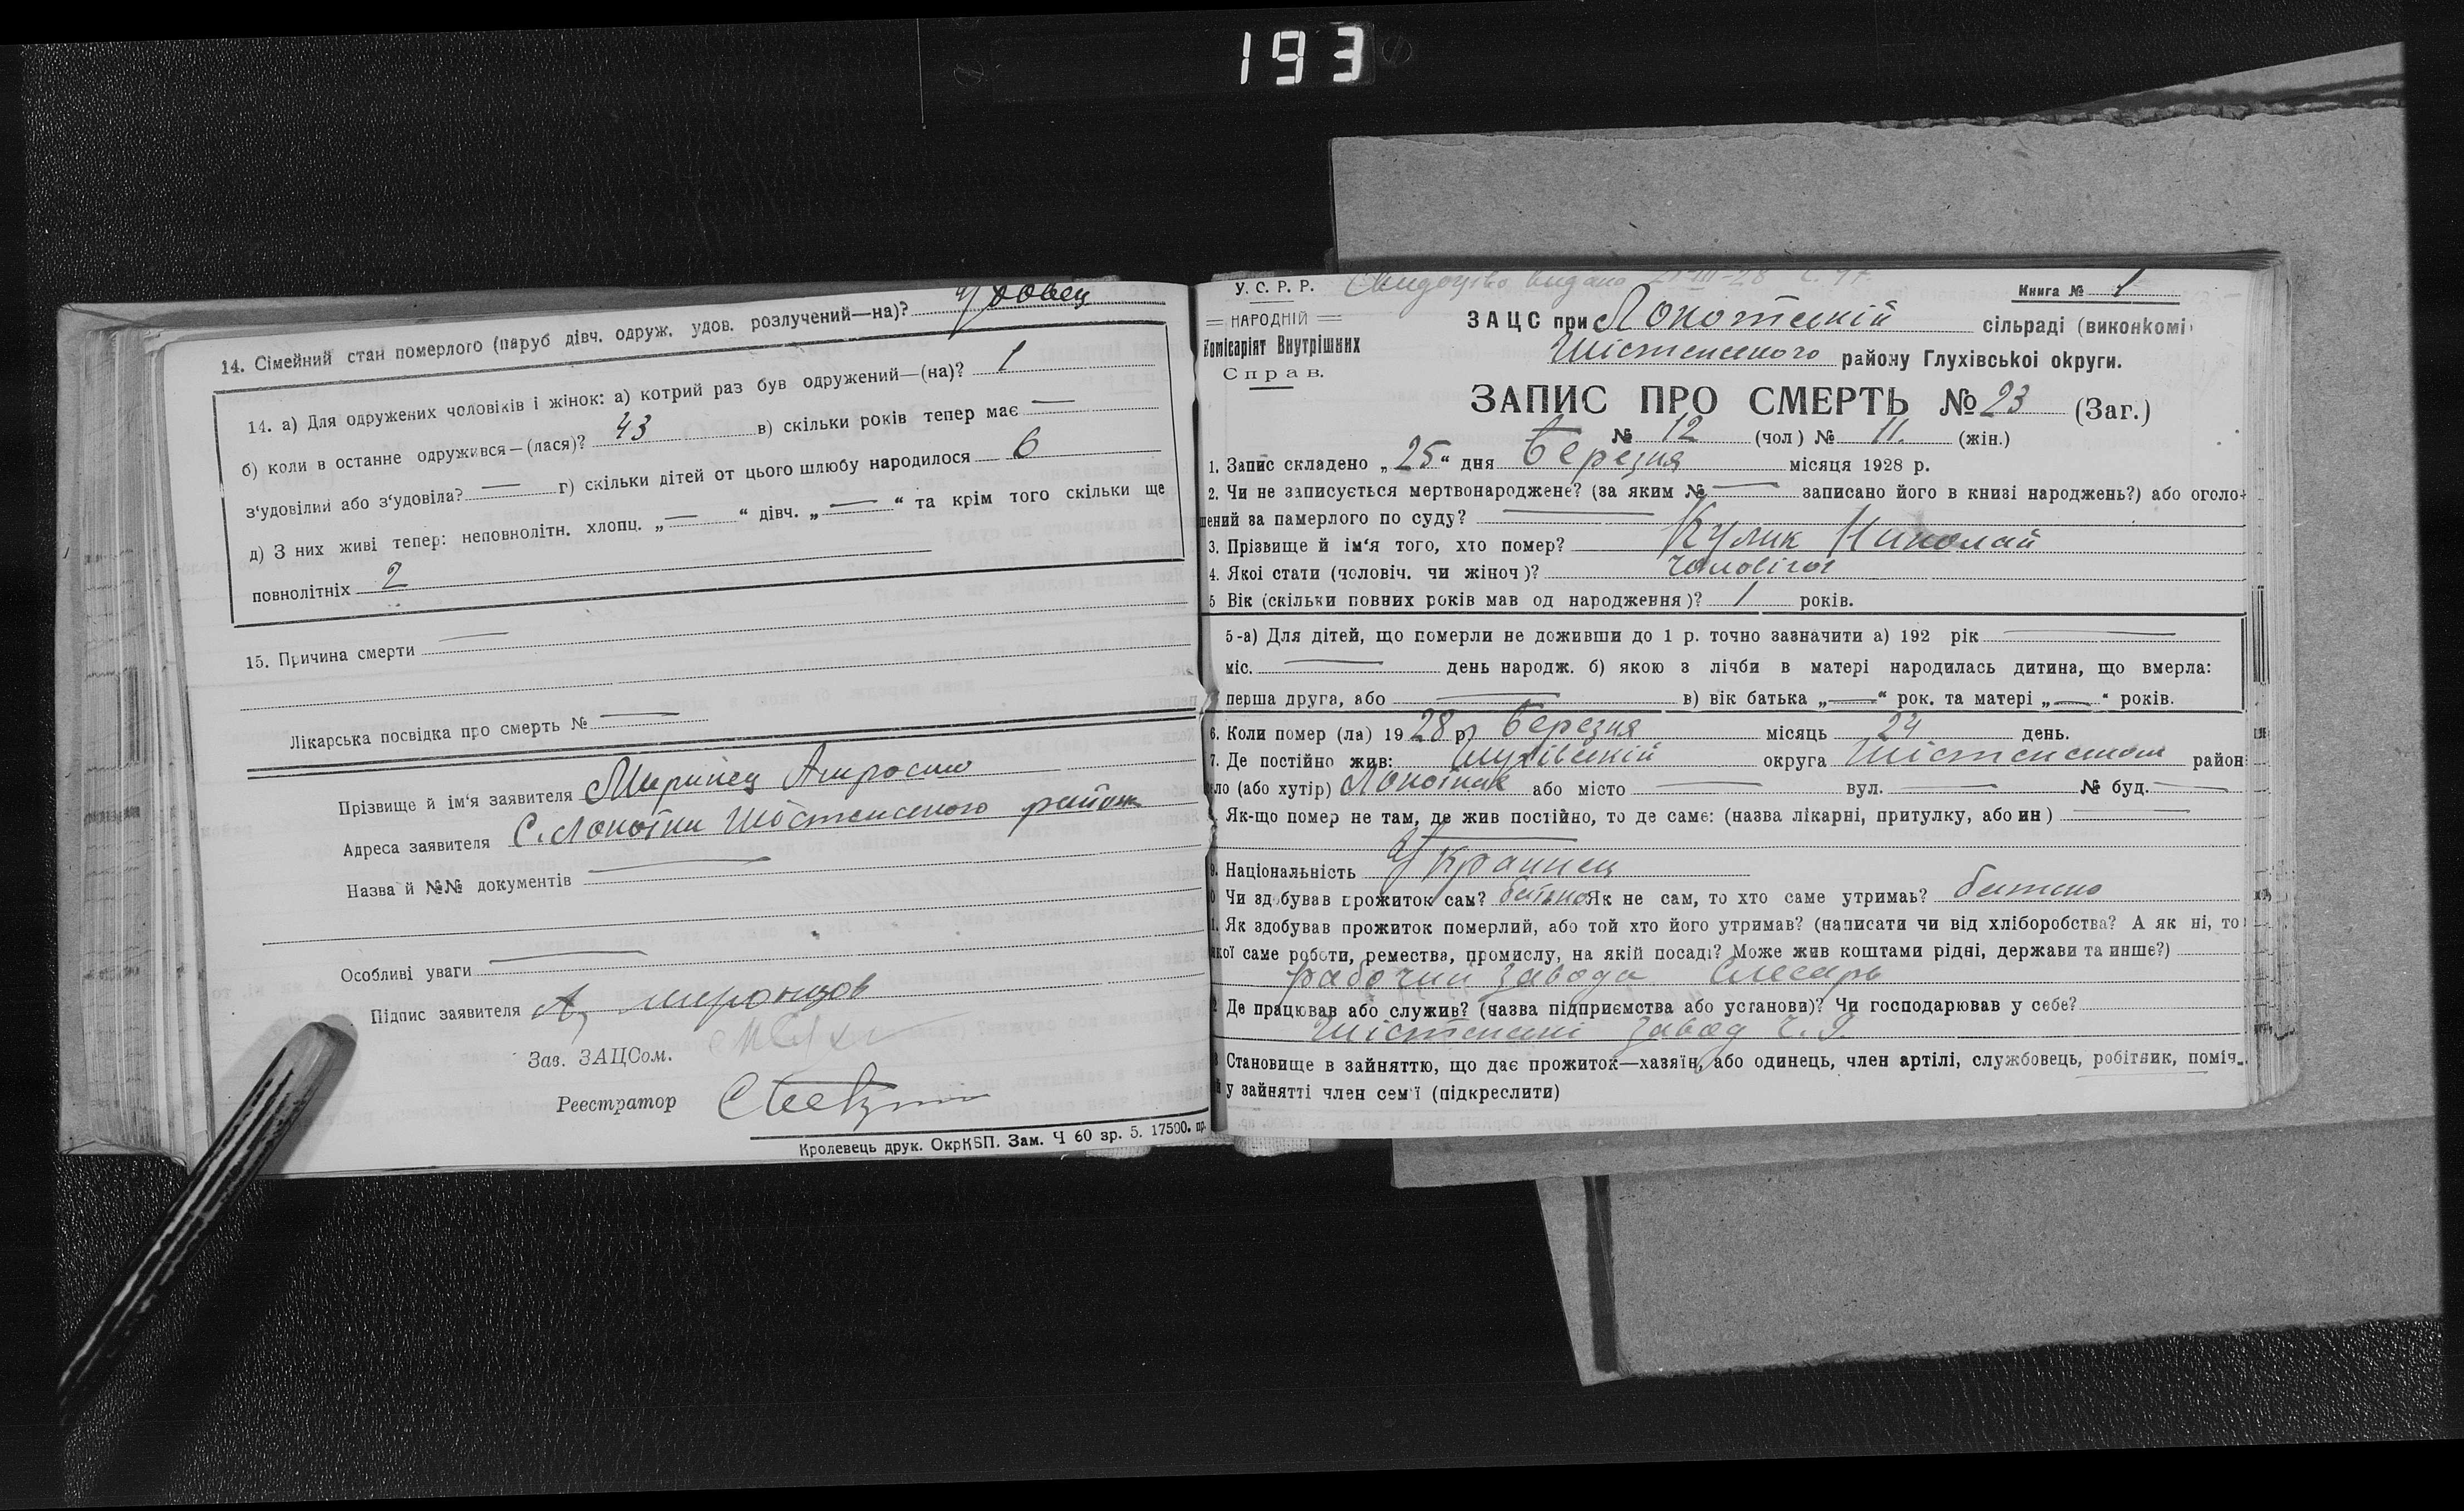 193
14. Сімейний стан померлого (паруб дівч. одруж. удов. розлучений—на)? Удовец
14. а) Для одружених чоловіків і жінок: а) котрий раз був одружений—(на)? 1
б) коли в останне одружився—(лася)? 43 в) скільки років тепер має —
з'удовілий або з'удовіла? — г) скільки дітей от цього шлюбу народилося 6
д) З них живі тепер: неповнолітн. хлопц. „—“ дівч. „—“ та крім того скільки ще
повнолітніх 2
15. Причина смерти —
Лікарська посвідка про смерть № —
Прізвище й ім'я заявителя
Адреса заявителя С. Локотки Шістенського район
Назва й №№ документів —
Особливі уваги —
Підпис заявителя А
Зав. ЗАЦСом.
Реестратор
Кролевець друк. ОкрКВП. Зам. Ч 60 зр. 5. 17500. пр.
У. С. Р. Р. Свидоцтво видано
Книга № 1
НАРОДНІЙ
Комісаріят Внутрішних
Справ.
ЗАЦС при Локотській сільраді (виконкомі
Шістенського району Глухівськоі округи.
ЗАПИС ПРО СМЕРТЬ № 23 (Заг.)
№ 12 (чол) № 11. (жін.)
1. Запис складено „25“ дня березня місяця 1928 р.
2. Чи не записується мертвонароджене? (за яким № — записано його в книзі народжень?) або оголо-
шений за памерлого по суду? —
3. Прізвище й ім'я того, хто помер? Кулик Николай
4. Якоі стати (чоловіч. чи жіноч)? чоловічої
5 Вік (скільки повних років мав од народження)? 1 років.
5-а) Для дітей, що померли не доживши до 1 р. точно зазначити а) 192 рік —
міс. — день народж. б) якою з лічби в матері народилась дитина, що вмерла:
перша друга, або — в) вік батька „—“ рок. та матері „—“ років.
6. Коли помер (ла) 1928 р березня місяць 24 день.
7. Де постійно жив: Глухівській округа Шістенском район
ло (або хутір) Локотках або місто — вул. — № буд. —
Як-що помер не там, де жив постійно, то де саме: (назва лікарні, притулку, або ин) —
9. Національність Украинец
Чи здобував прожиток сам? батько Як не сам, то хто саме утримаь? батько
1. Як здобував прожиток померлий, або той хто його утримав? (написати чи від хліборобства? А як ні, то
якої саме роботи, ремества, промислу, на якій посаді? Може жив коштами рідні, держави та инше?)
рабочий завода слесарь
Де працював або служив? (назва підприємства або установи)? Чи господарював у себе?
завод
Становище в зайняттю, що дає прожиток—хазяїн, або одинець, член артілі, службовець, робітник, поміч-
й у зайнятті член сем'ї (підкреслити)